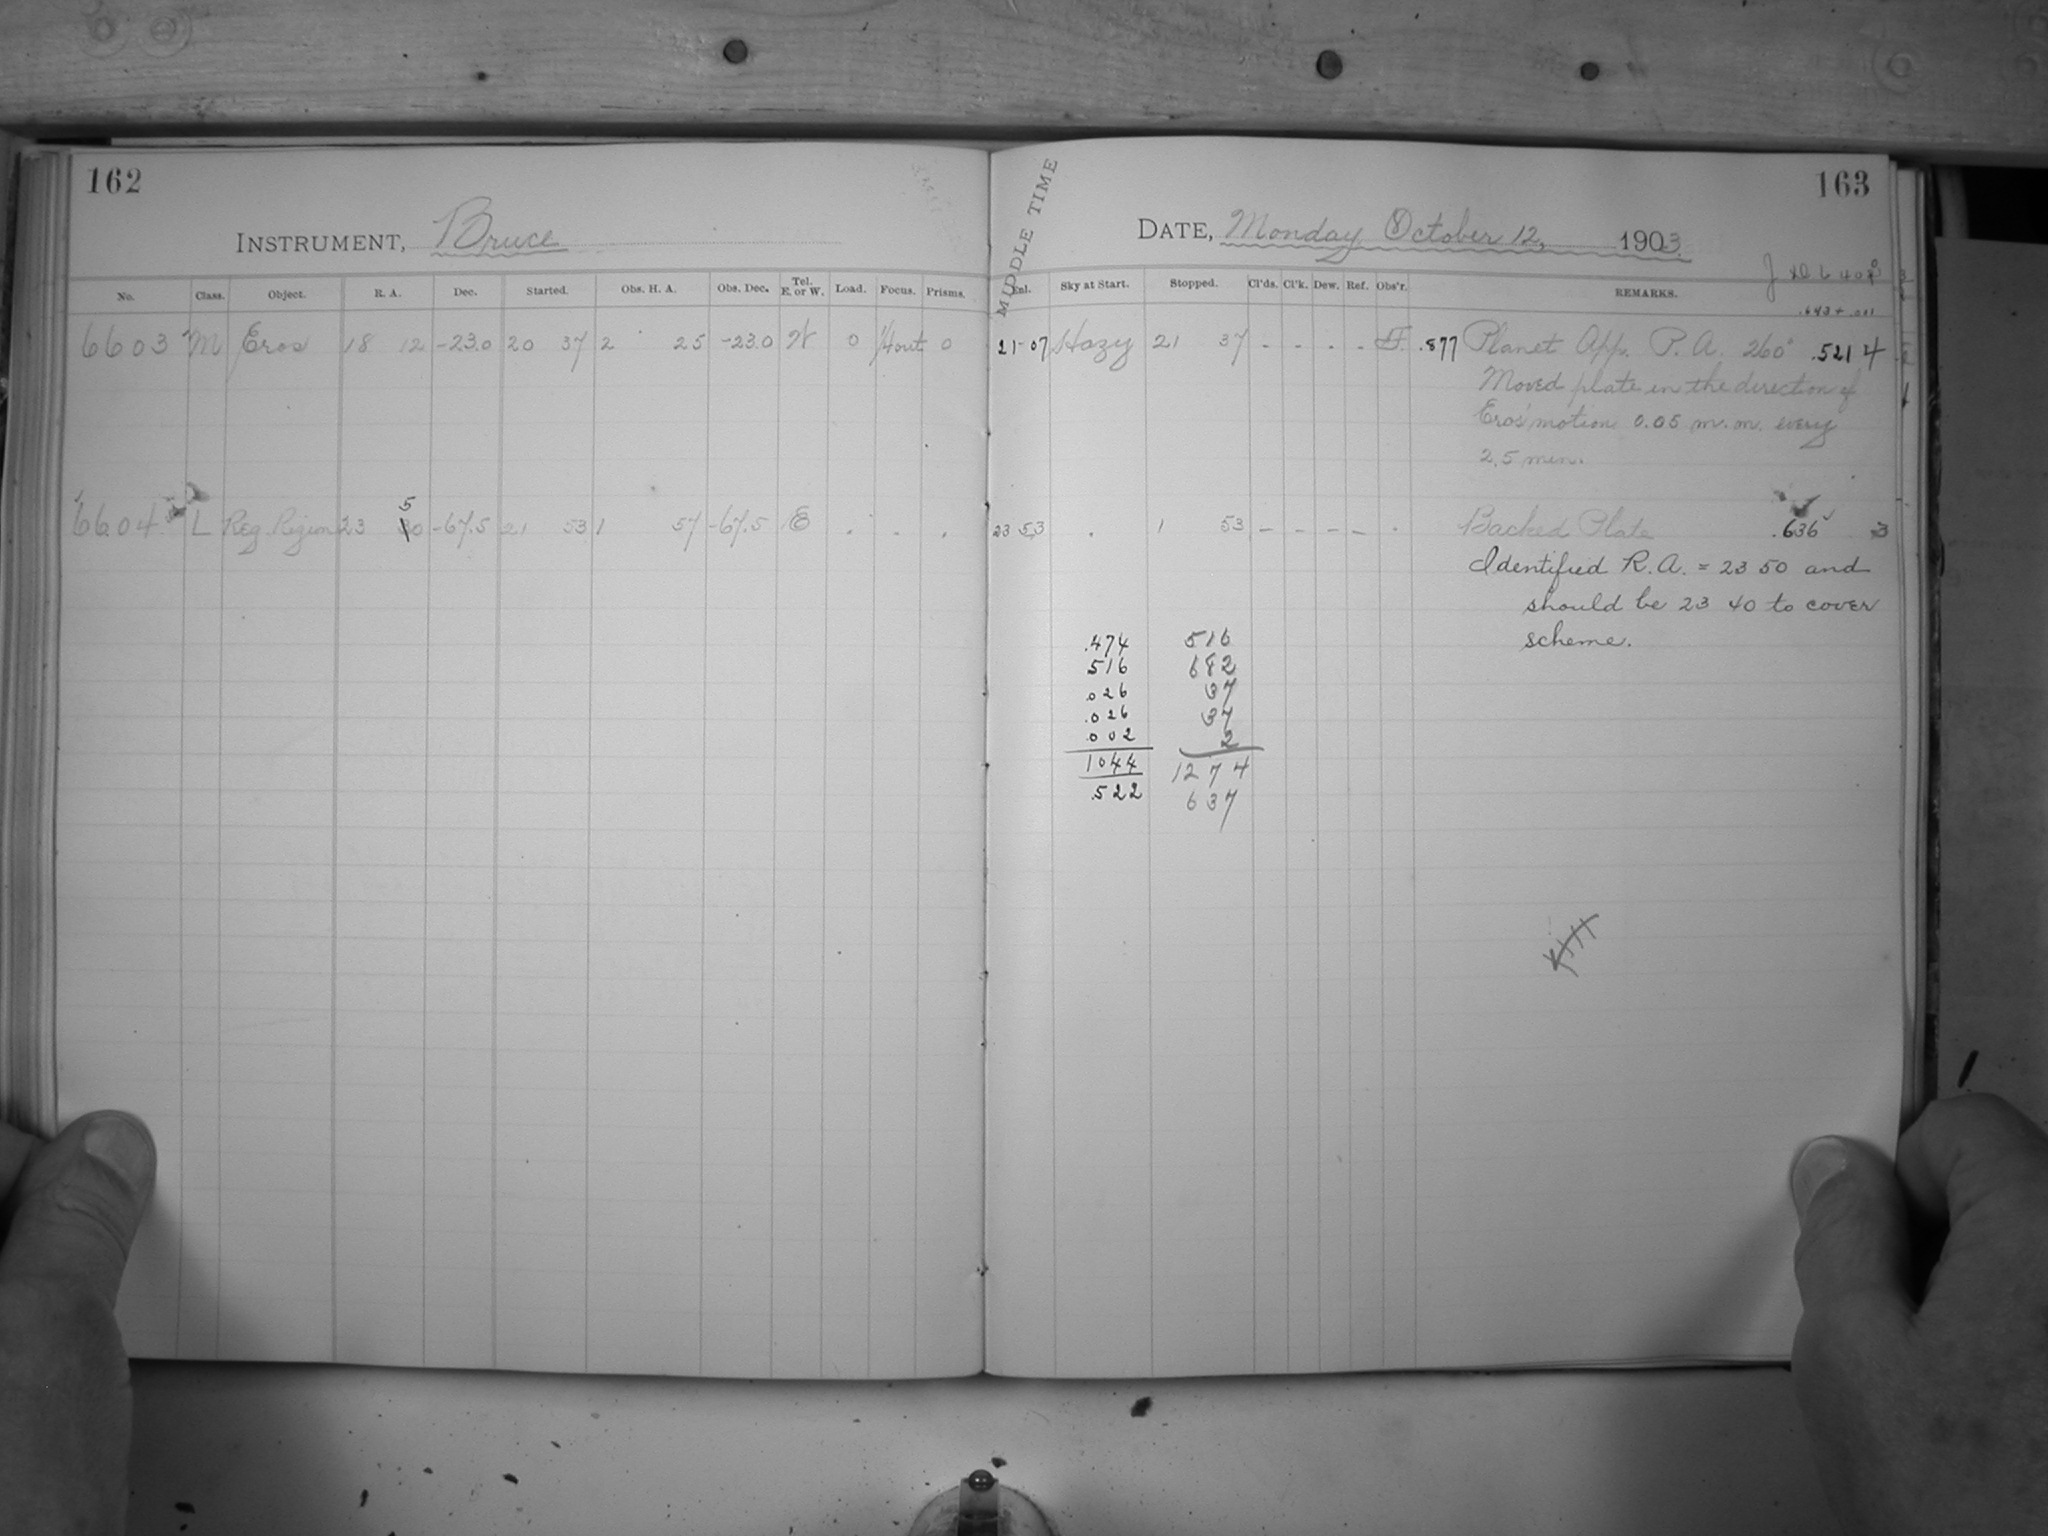 162
INSTRUMENT, Bruce
No. Class. Object. R. A. Dec. Started. Obs. H. A. Obs. Dec. Tel. E. or W. Load. Focus. Prisms.
6603 M Eros 18 12 -23.0 20 37 2 25 -23.0 W 0 0
6604 L Reg. Region 23 50 -67.5 21 53 1 57 -67.5 E
163
MIDDLE TIME
DATE, Monday October 12, 1903
Enl. Sky at Start. Stopped. Cl'ds. Cl'k. Dew. Ref. Obs'r. REMARKS.
.643 + .001
21-07 Hazy 21 37 - - - - F. .877 Planet App. P. A. 260° .521 4
Moved plate in the direction of
Eros' motion 0.05 m.m. every
2.5 min.
23 53 . 1 53 - - - - . Backed Plate .636 3
Identified R.A. = 23 50 and
should be 23 40 to cover
scheme.
.474 516
516 682
.026 37
.026 37
.002 2
1044 1274
.522 637